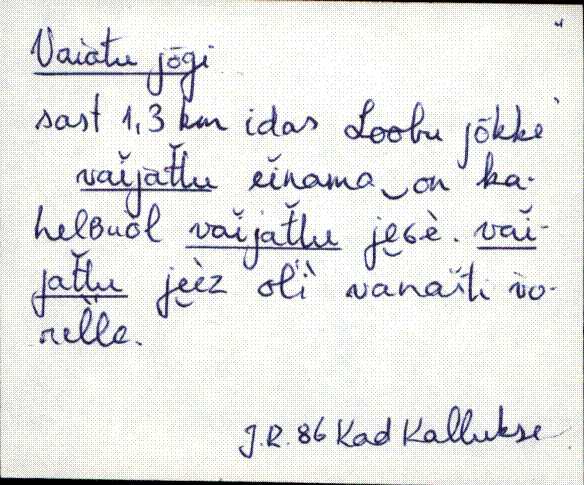 Vaiatu jõgi
sast 1,3 km idas Loobu jõkke
vaĭjat̆lu eĭnama on ka-
helBuòl vaĭjat̆lu jẹGè. vaĭ-
jat̆lu jẹèz olì vanaśti vo-
relle.
J.R. 86 Kad Kallukse